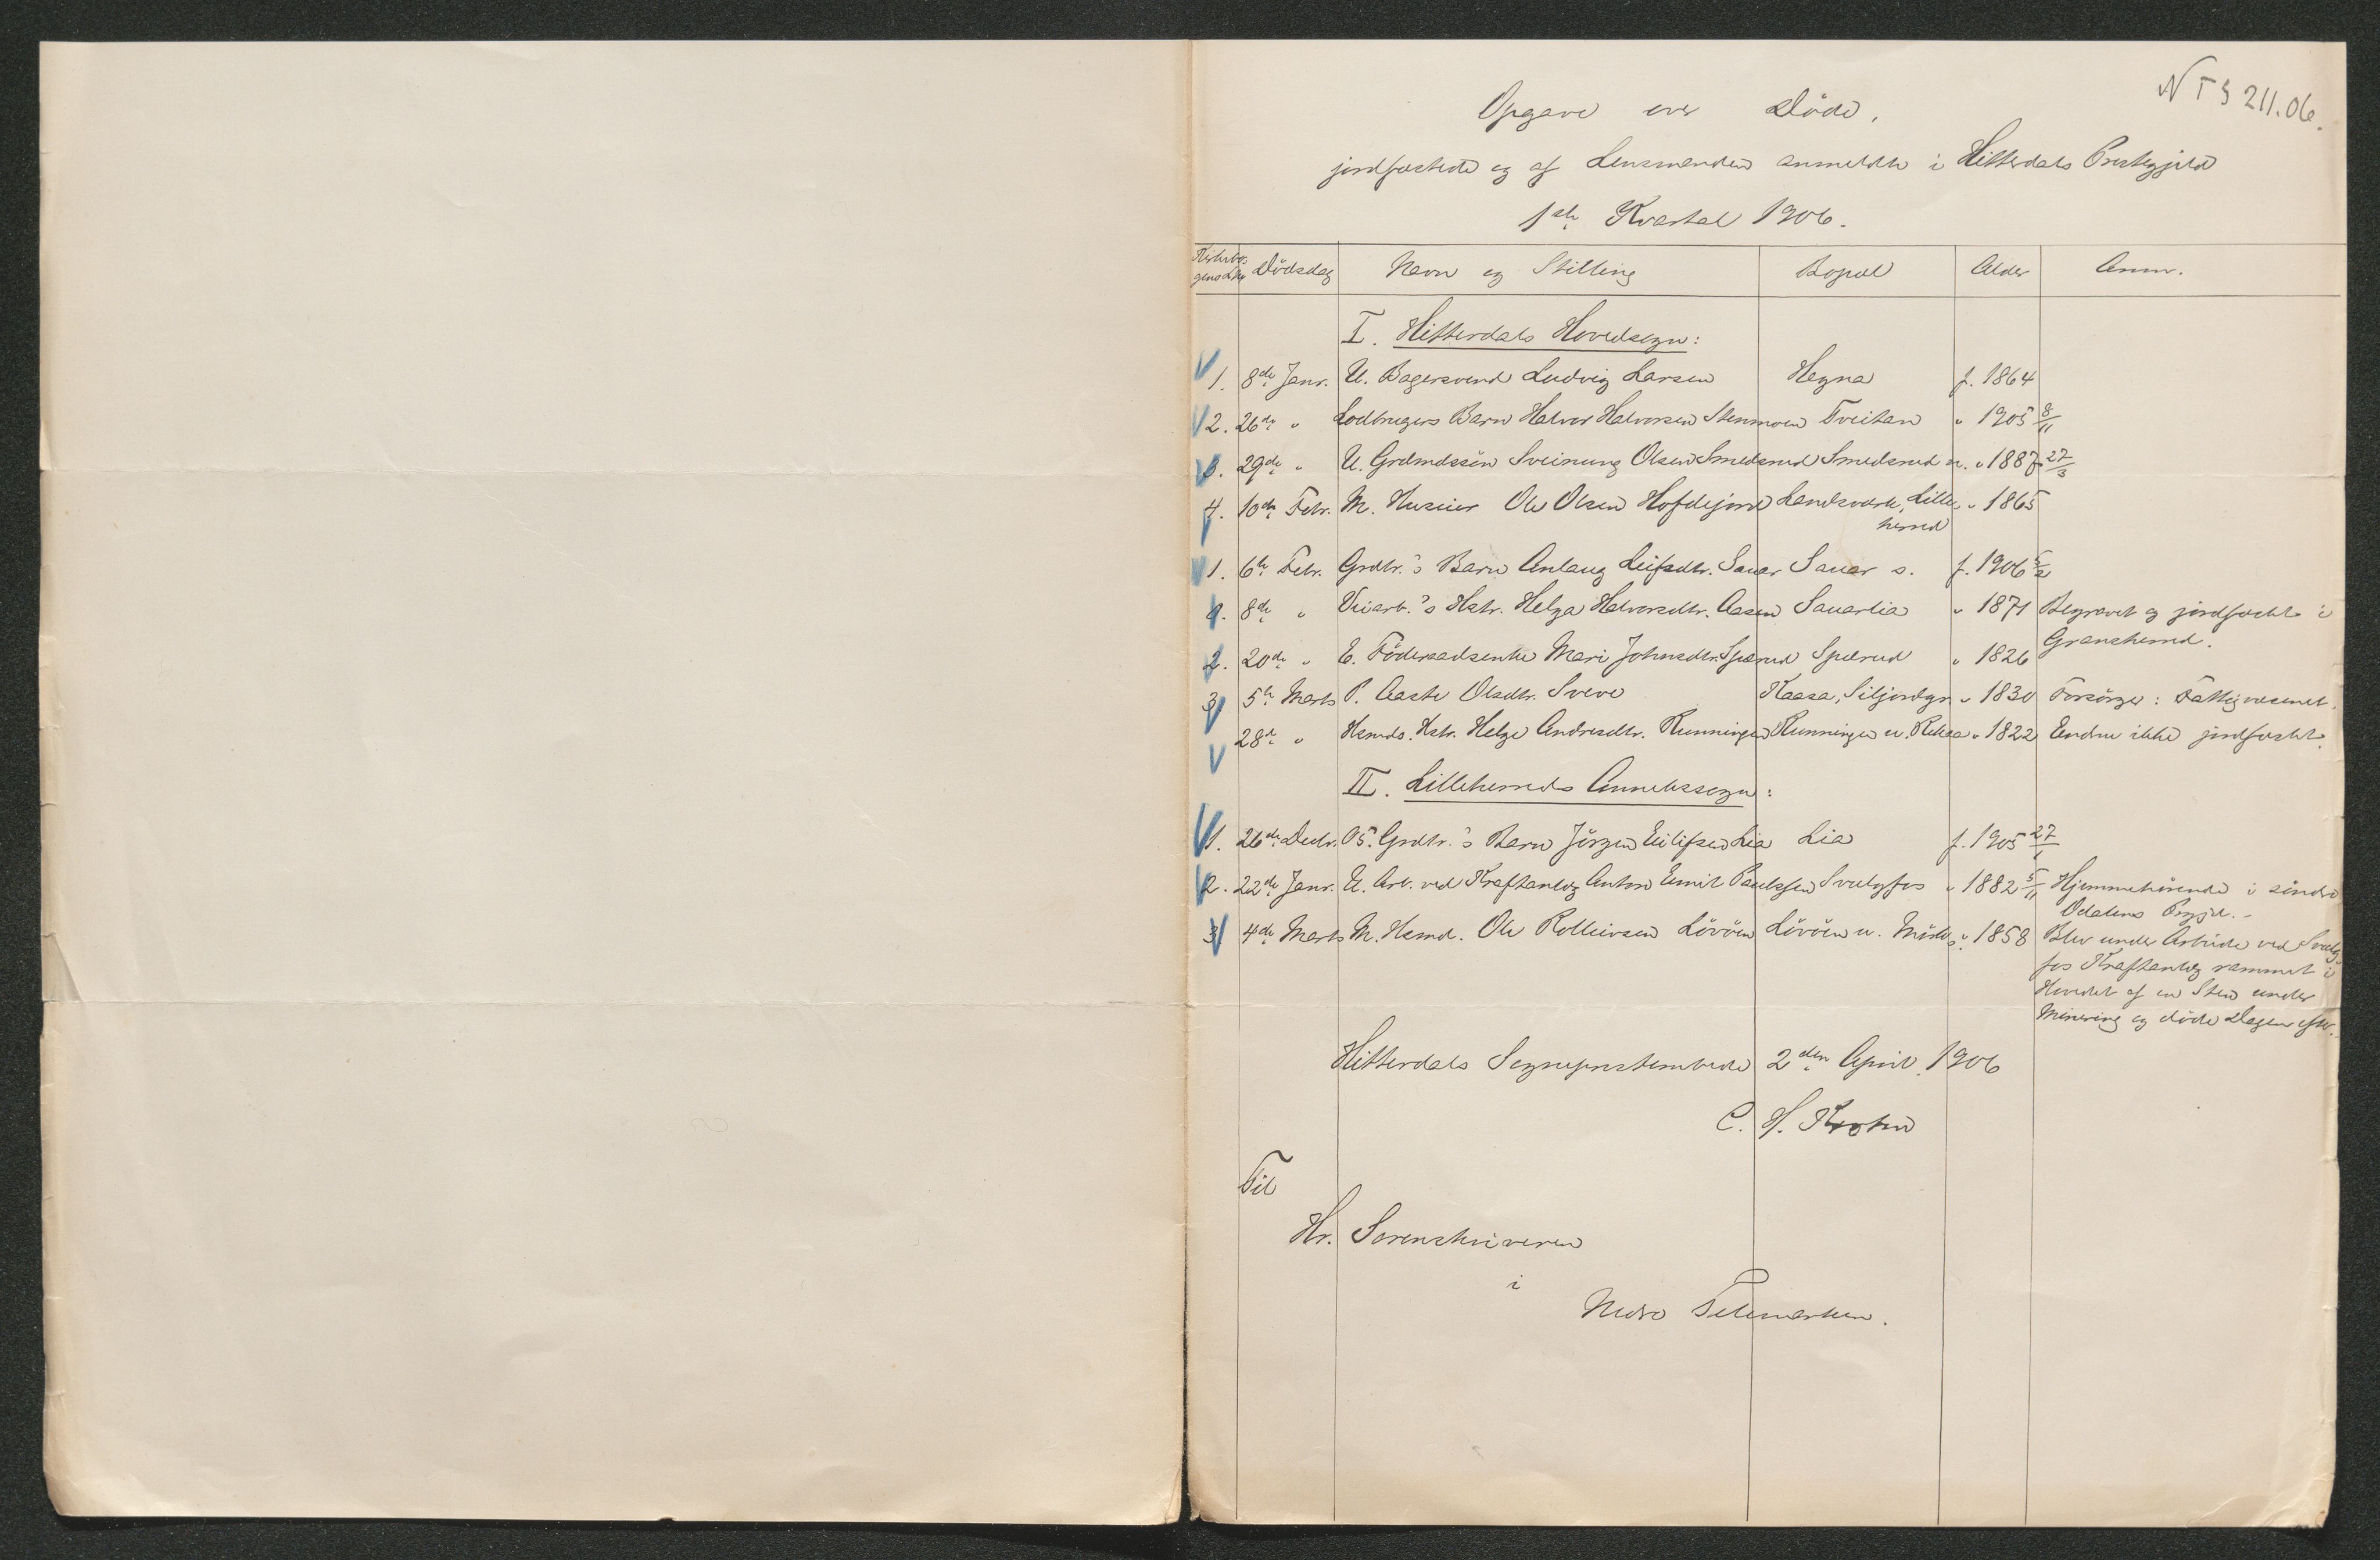 NTS 211.06.
Opgave over Døde,
jordfæstede og af Lensmanden anmeldte i Hitterdals Prestegjeld
1ste Kvartal 1906.
Kirkebo- Dødsdag Navn og Stilling Bopæl Alder Anm.
gens No.
I. Hitterdals Hovedsogn:
1. 8de Janr. U. Bagersvend Ludvig Larsen Hegna f. 1864
2. 26de " Lodbrugers Barn Halvor Halvorsen Stenmoen Tveitan " 1905 8/11
3. 29de " U. Grdmdssøn Sveinung Olsen Smedsrud Smedsrud n. " 1887 27/3
4. 10de Febr. M. Huseier Ole Olsen Hofdejord Landsverk, Lille- " 1865
herred
1. 6te Febr. Grdbr.'s Barn Anlaug Leifsdtr. Sauar Sauar s. f. 1906 5/2
8de " Veiarb.'s Hstr. Helga Halvorsdtr. Aasen Sauarlia " 1871 Begravet og jordfæstet i
Gransherred.
2. 20de " E. Føderaadsenke Mari Johnsdtr. Spærud Spærud " 1826
3. 5te Marts P. Aaste Olsdtr. Sveve Kaasa, Siljordgr. " 1830 Forsørger: Fattigvæsenet.
28de " Hsmds. Hstr. Helge Andresdtr. Runningen Runningen u. Rekaa " 1822 Endnu ikke jordfæstet.
II. Lilleherreds Annekssogn:
1. 26de Decbr. 05. Grdbr.'s Barn Jørgen Eilifsen Lia Lia f. 1905 27/1
2. 22de Janr. U. Arb. ved Kraftanlæg Anton Emil Paulsen Svælgfos " 1882 5/11 Hjemmehørende i søndre
Odalens Prgjd.
3. 4de Marts M. Hsmd. Ole Rolleivsen Løvöen Løvöen u. " 1858 Blev under Arbeide ved Svælg-
fos Kraftanlæg rammet i
Hovedet af en Sten under
Minering og døde Dagen efter.
Hitterdals Sogneprestembede 2den April 1906
C. H. Krohn
Til
Hr. Sorenskriveren
i
Nedre Telemarken.